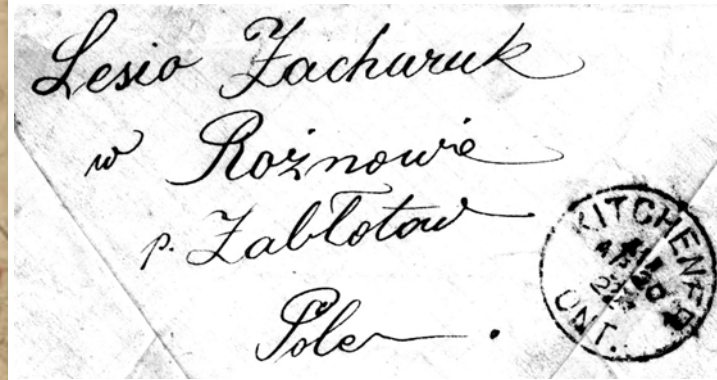 Lesio Zachuruk
w Rożnowie
p. Zabłotow
Polen
KITCHENER
AP 20
22
ONT.